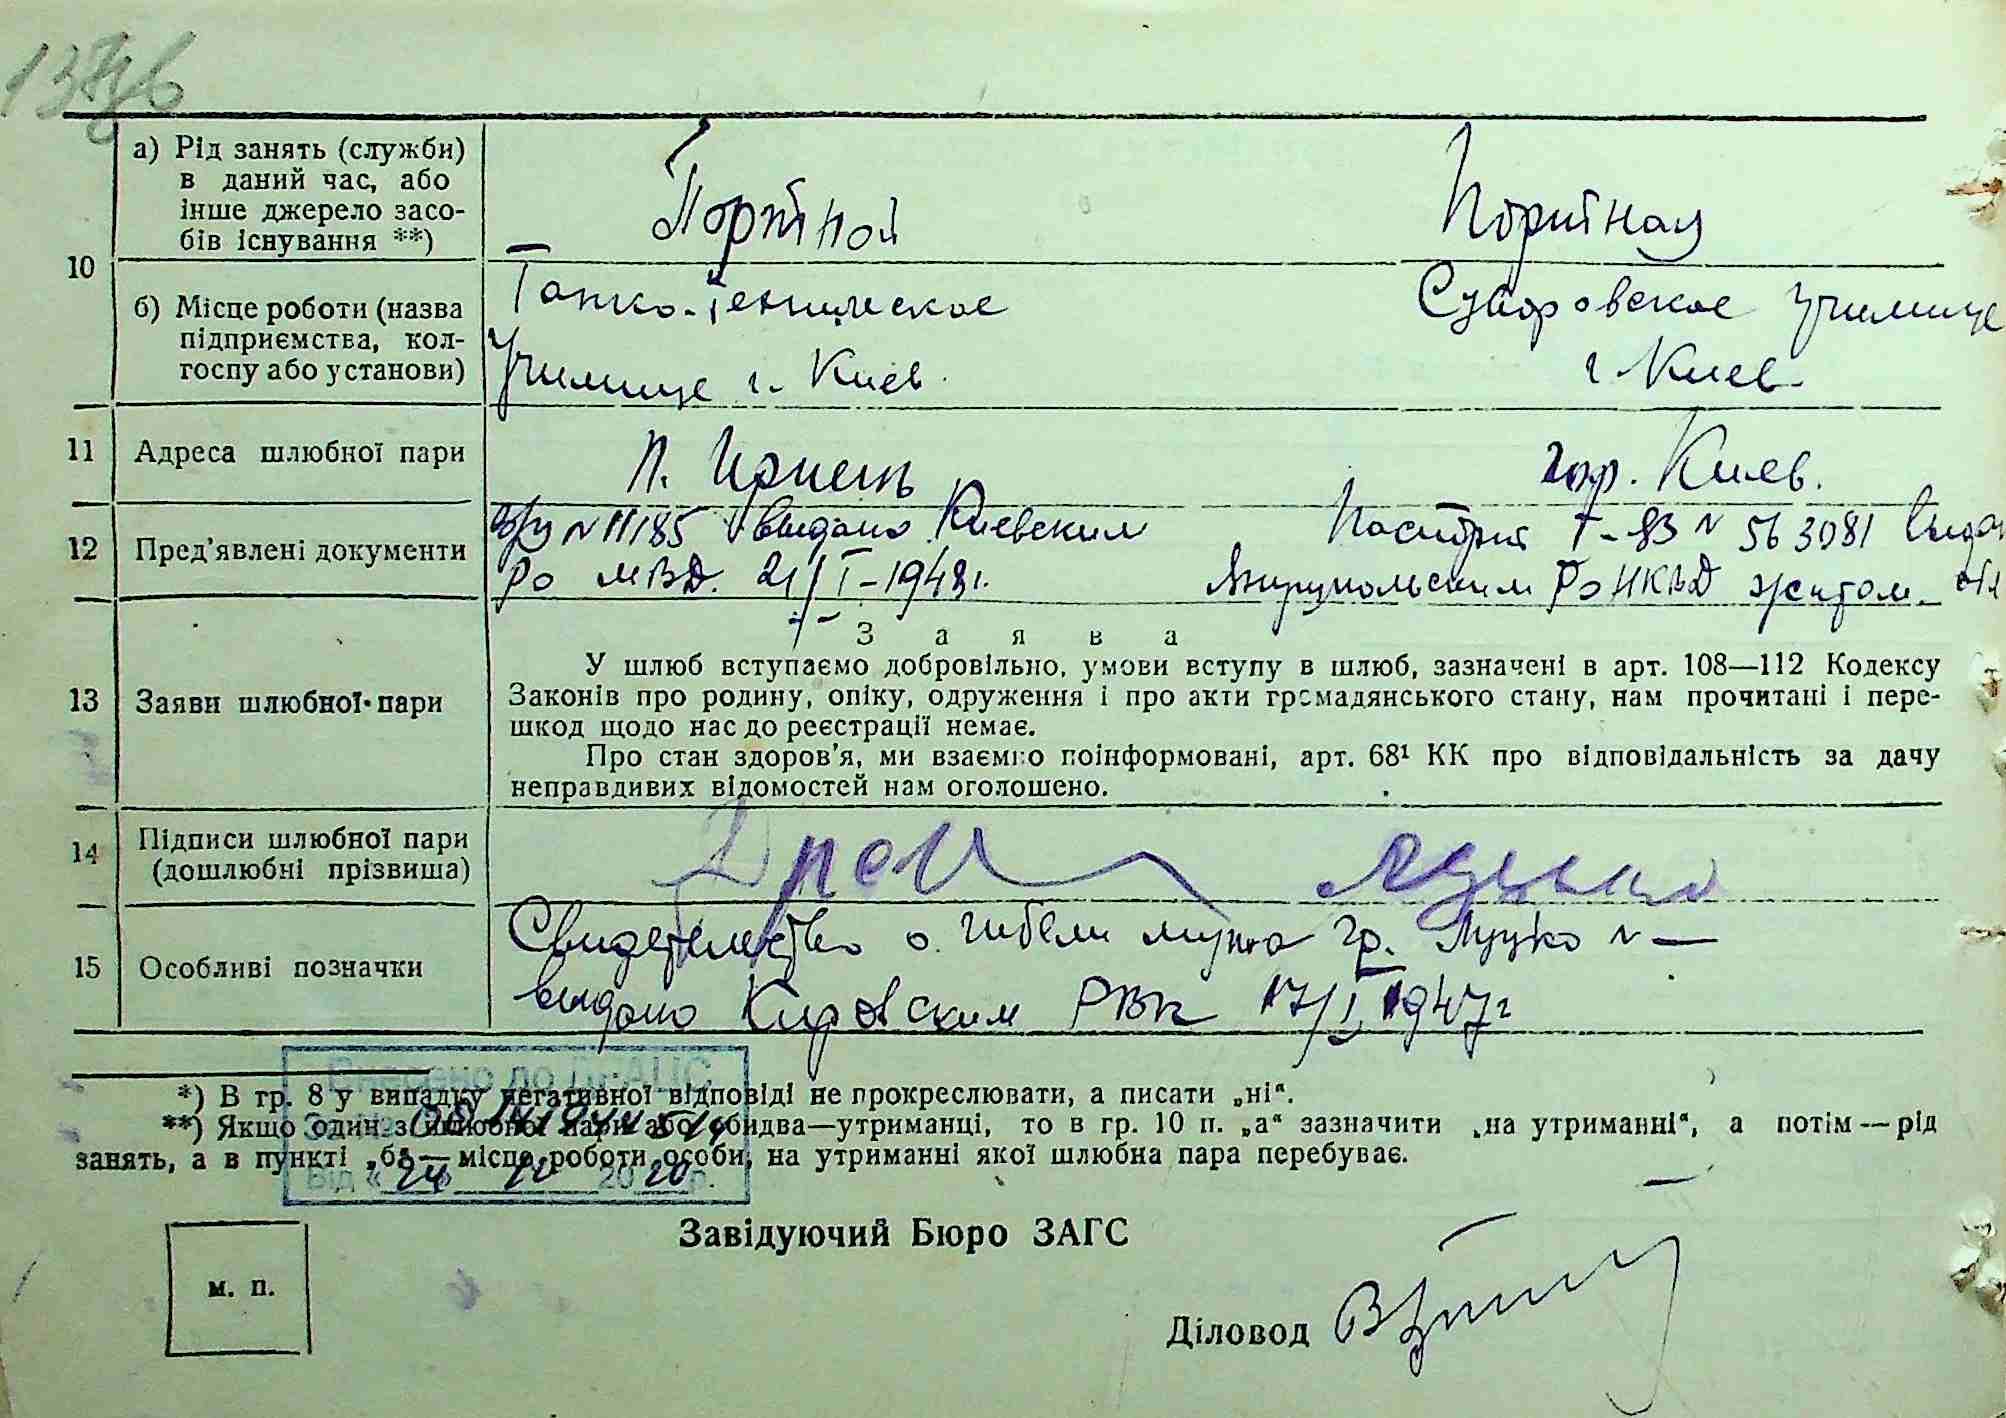 а) Рід занять (служби)
в даний час, або
інше джерело засо-
бів існування **)
Портной
Портная
10
б) Місце роботи (назва
підприємства, кол-
госпу або установи)
Танко-Техническое
Училище г. Киев.
Суворовское Училище
г. Киев.
11 Адреса шлюбної пари
п. Ирпень
гор. Киев.
12 Пред’явлені документи
N 11185 выдано Киевским
РО МВД. 21/I-1948г.
Паспорт N 563081
РО НКВД житом.
З а я в а
13 Заяви шлюбної пари
У шлюб вступаємо добровільно, умови вступу в шлюб, зазначені в арт. 108—112 Кодексу
Законів про родину, опіку, одруження і про акти громадянського стану, нам прочитані і пере-
шкод щодо нас до реєстрації немає.
Про стан здоров’я, ми взаємно поінформовані, арт. 68¹ КК про відповідальність за дачу
неправдивих відомостей нам оголошено.
14 Підписи шлюбної пари
(дошлюбні прізвища)
15 Особливі позначки
Свидетельство о гибели мужа гр. Луцко N —
выдано Кировским РВК 17/I 1947г
*) В гр. 8 у випадку негативної відповіді не прокреслювати, а писати „ні“.
**) Якщо один з шлюбної пари або обидва—утриманці, то в гр. 10 п. „а“ зазначити „на утриманні“, а потім — рід
занять, а в пункті „б“ — місце роботи особи, на утриманні якої шлюбна пара перебуває.
Внесено до ДРАЦС
Від « 24 » 20 20 р.
Завідуючий Бюро ЗАГС
м. п.
Діловод